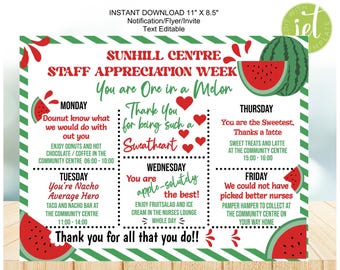 INSTANT DOWNLOAD 11" X 8.5"
Notification/Flyer/Invite
Text Editable
iet
SUNHILL CENTRE
STAFF APPRECIATION WEEK
You are One in a Melon
MONDAY
Dounut know what
we would do with
out you
ENJOY DONUTS AND HOT
CHOCOLATE / COFFEE IN THE
COMMUNITY CENTRE 06:00 - 10:00
Thank You
for being such a
Sweatheart
THURSDAY
You are the Sweetest,
Thanks a latte
SWEET TREATS AND LATTES
AT THE COMMUNITY CENTRE
15:00 - 10:00
TUESDAY
You're Nacho
Average Hero
TACO AND NACHO BAR AT
THE COMMUNITY CENTRE
11:00 - 14:00
WEDNESDAY
You are
apple-solutely
the best!
ENJOY FRUITSALAD AND ICE
CREAM IN THE NURSES LOUNGE
WHOLE DAY
FRIDAY
We could not have
picked better nurses
PAMPER HAMPER TO COLLECT AT
THE COMMUNITY CENTRE ON
YOUR WAY HOME
Thank you for all that you do!!